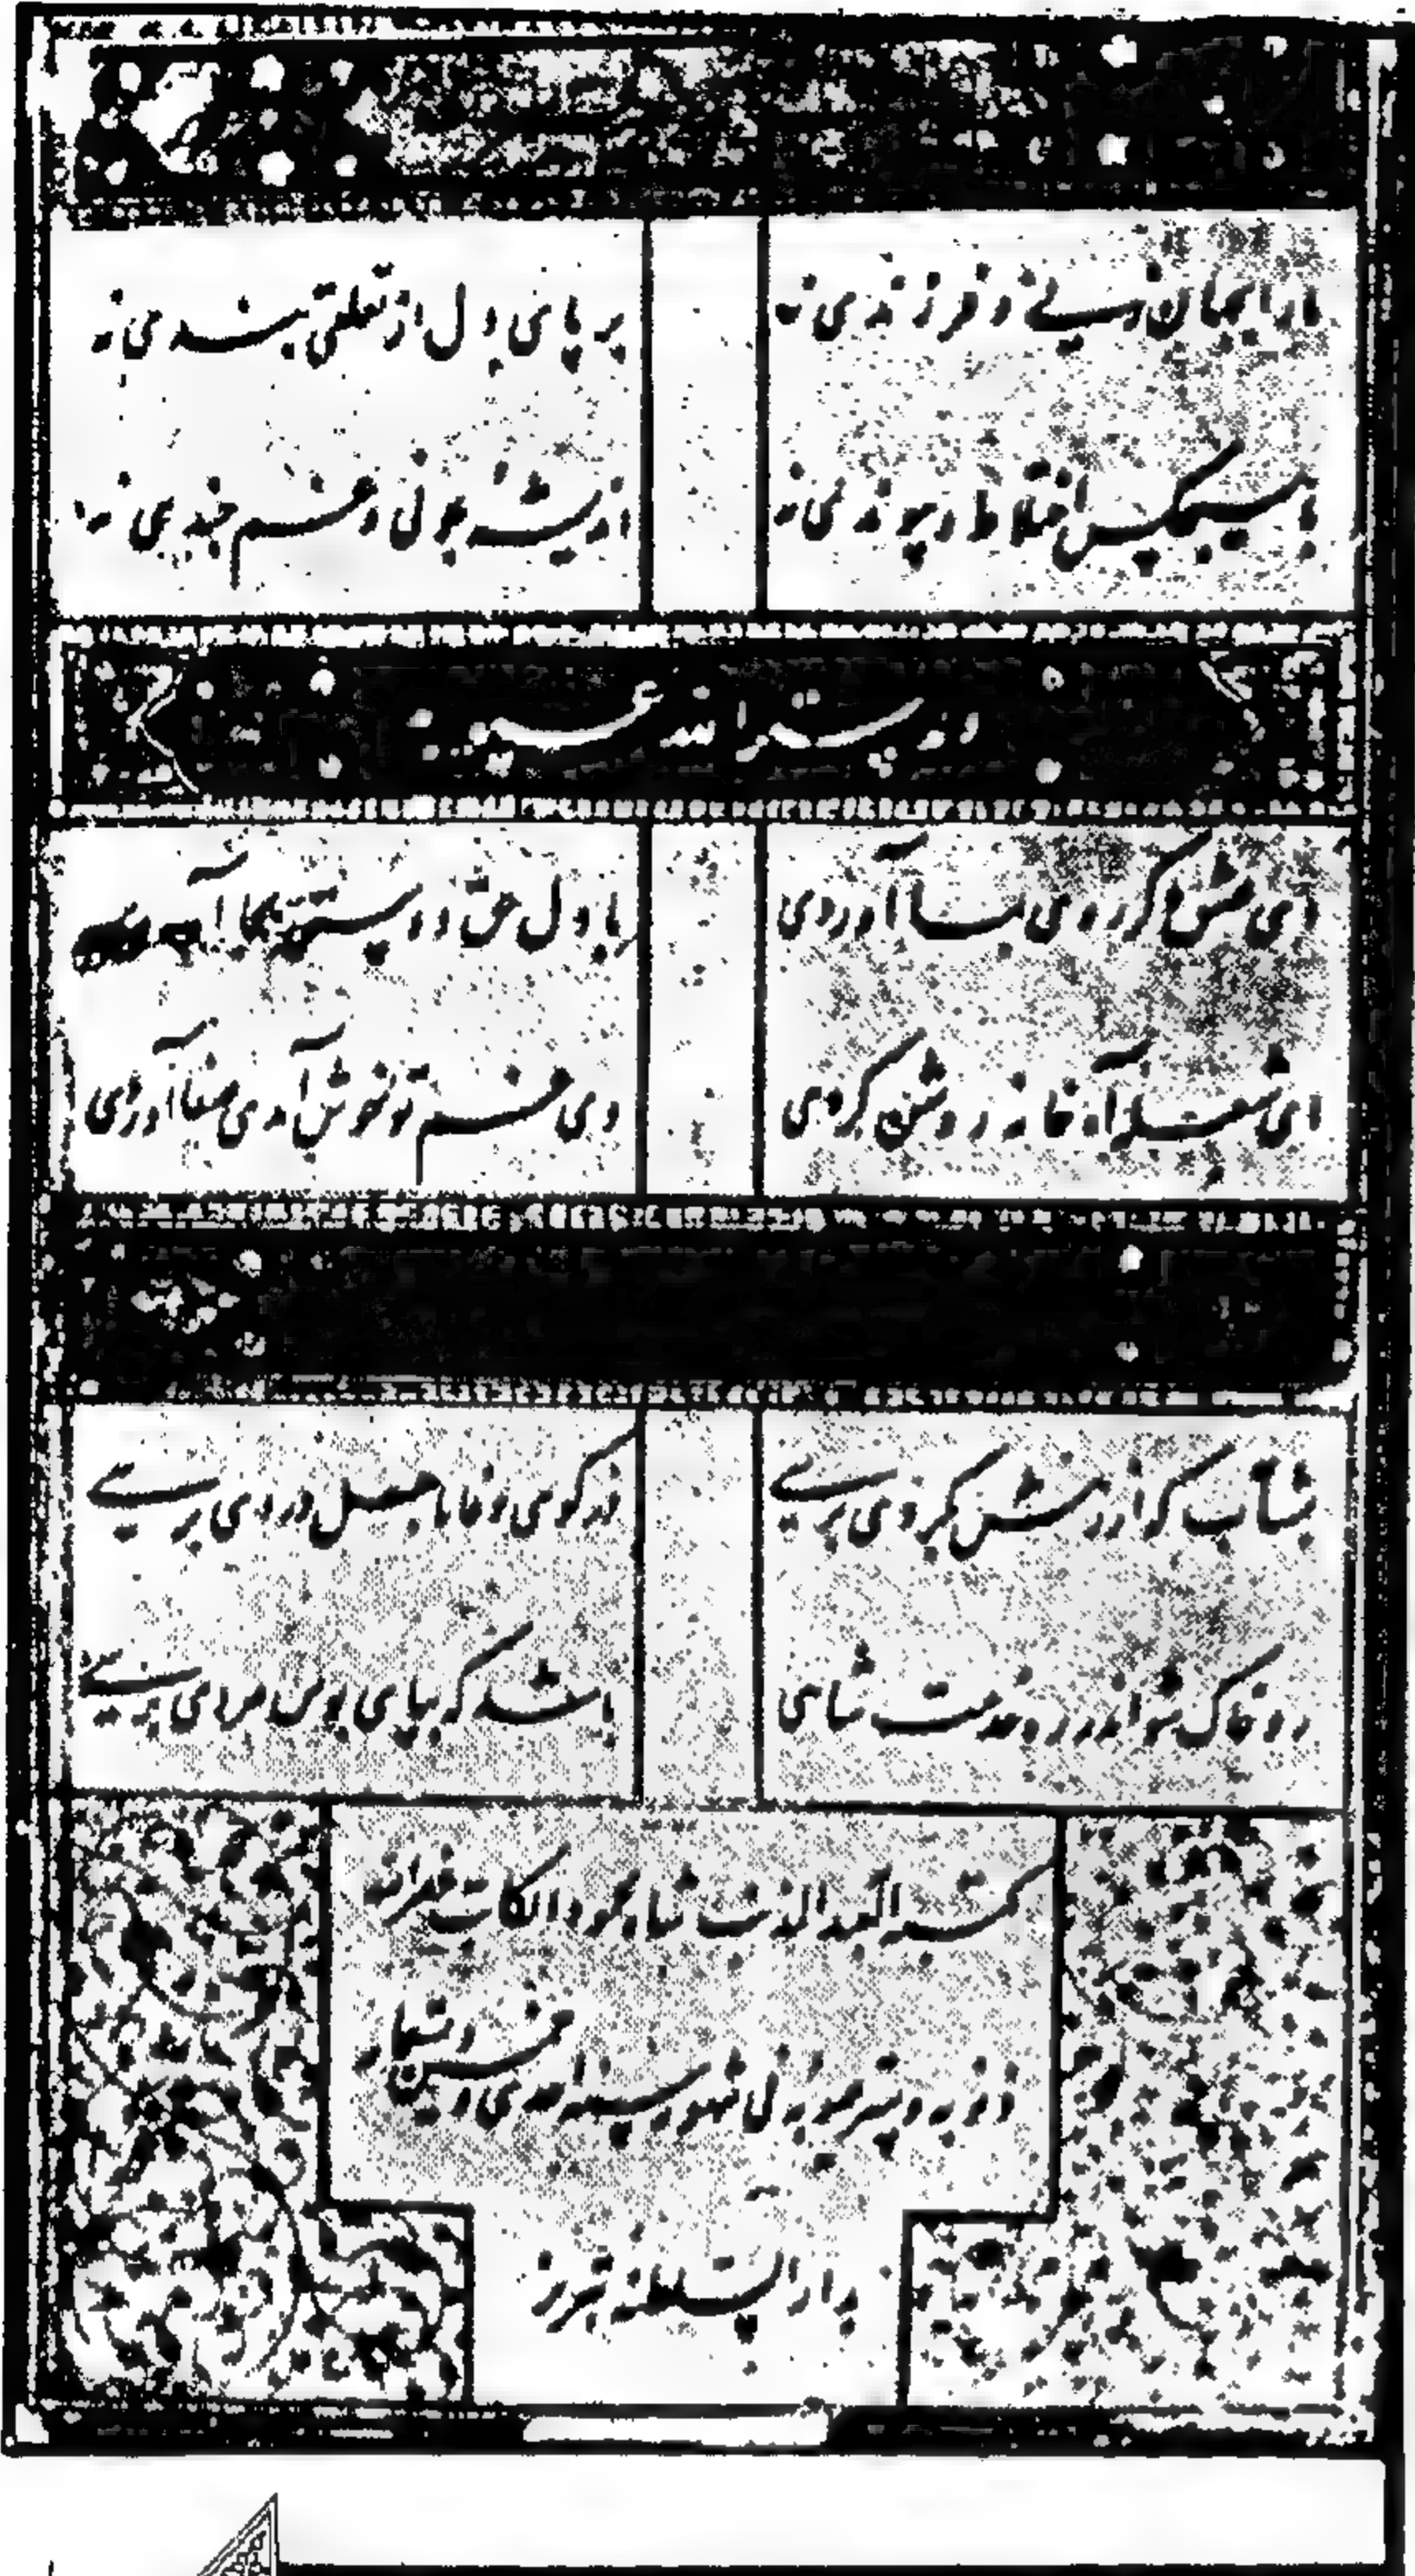 ما را بجهان زنی و فرزندی نه
بر پای دل از تعلقی بندی نه
با هیچکس اختلاط و پیوندی نه
اندیشه چونی و غم چندی نه
ای عشق کرو می بما آوردی
با دل حق دوستی بجا آوردی
ای شعله آه خانه روشن کردی
وی غم تو خوش آمدی صفا آوردی
بشتاب که از عشق بگردی برسی
وز کوی وفا باهل دردی برسی
رو خاک شو اندر ره خدمت شاهی
باشد که بپای بوس مردی برسی
کتبه العبد المذنب شاه محمود الکاتب غفر الله
ذنوبه و ستر عیوبه فی شهور سنه احدی و خمسین و تسعمایه
بدار السلطنه تبریز